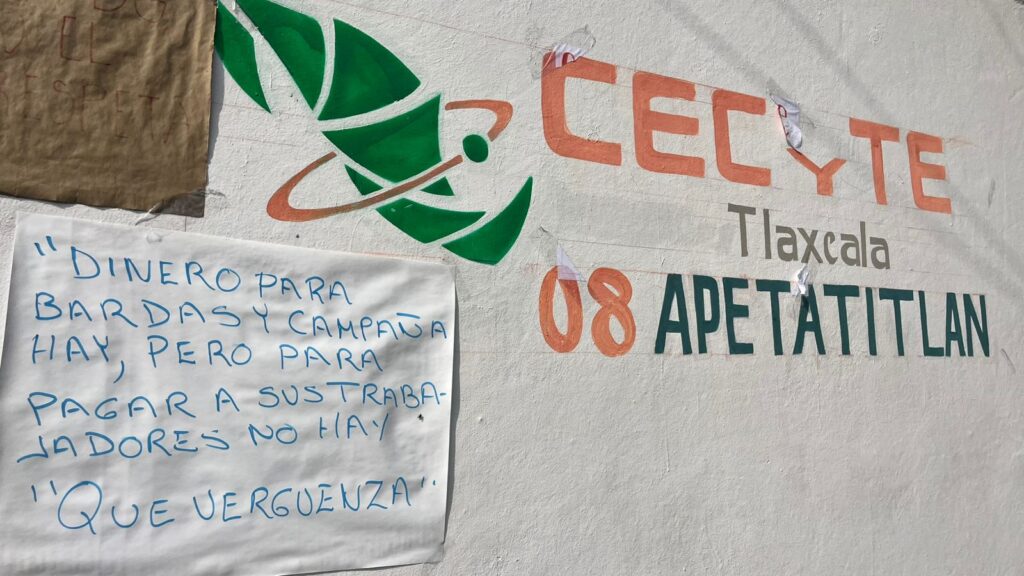 EL
"DINERO PARA
BARDAS Y CAMPAÑA
HAY, PERO PARA
PAGAR A SUS TRABA-
JADORES NO HAY
"QUE VERGUENZA"
CECYTE
Tlaxcala
08 APETATITLAN